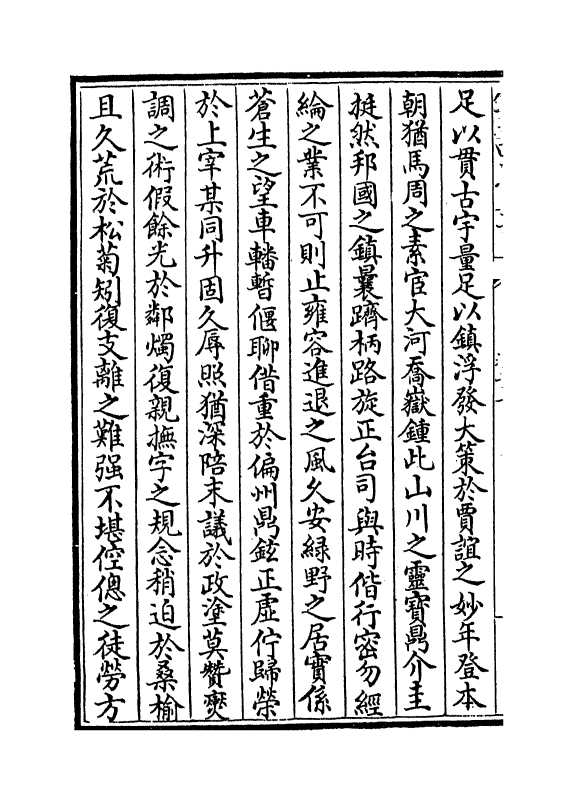 足以貫古宇量足以鎮浮發大策於賈誼之妙年登本
朝猶馬周之素宦大河喬嶽鍾此山川之靈寶鼎介圭
挺然邦國之鎮曩躋柄路旋正台司與時偕行密勿經
綸之業不可則止雍容進退之風久安綠野之居實係
蒼生之望車轓暫偃聊借重於偏州鼎鉉正虛佇歸榮
於上宰某同升固久辱照猶深陪末議於政塗莫贊燮
調之術假餘光於鄰燭復親撫字之規念稍迫於桑榆
且久荒於松菊矧復支離之難强不堪倥傯之徒勞方